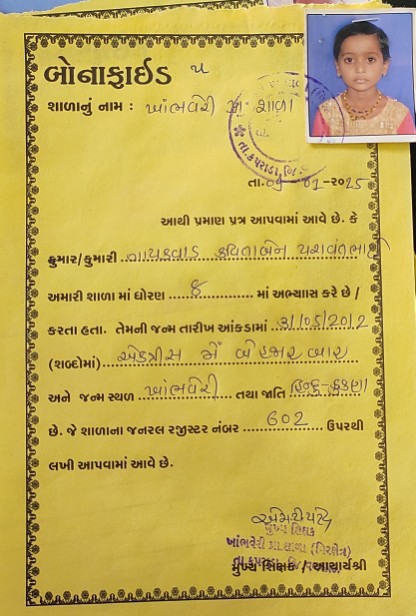 બોનાફાઈડ ૫
શાળાનું નામ : ખાંભવેરી પ્રા. શાળા
તા. કપરાડા, જિ.
તા. 09-01-૨૦25
આથી પ્રમાણ પત્ર આપવામાં આવે છે. કે
કુમાર/કુમારી ગાયકવાડ કવિતાબેન યશવંતભાઈ
અમારી શાળા માં ધોરણ ૪ માં અભ્યાસ કરે છે /
કરતા હતા. તેમની જન્મ તારીખ આંકડામાં 31/05/2012
(શબ્દોમાં) એકત્રીસ મેં બે હજાર બાર
અને જન્મ સ્થળ ખાંભવેરી તથા જાતિ હિન્દુ-કુકણા
છે. જે શાળાના જનરલ રજીસ્ટર નંબર 602 ઉપરથી
લખી આપવામાં આવે છે.
મુખ્ય શિક્ષક
ખાંભવેરી પ્રા શાળા
તા. કપરાડા
મુખ્ય શિક્ષક / આચાર્યશ્રી